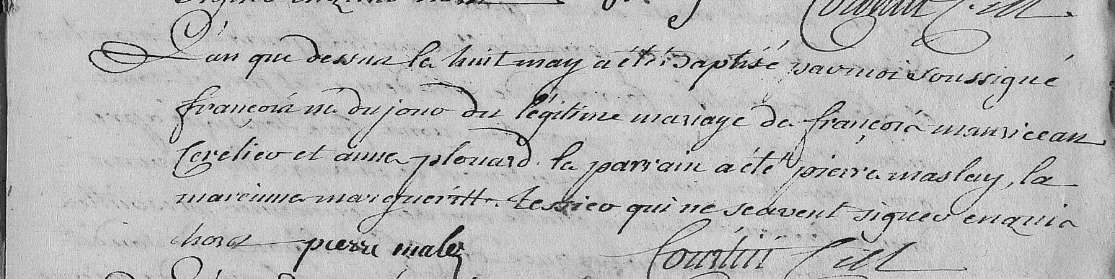 L'an que dessus le huit may a été baptisé par moi soussigné
françois né du jour du légitime mariage de françois mauriceau
Cerclier et anne plouard. le parrain a été pierre maslay, la
maraine marguéritte tessier qui ne scavent signer enquis
hors pierre male